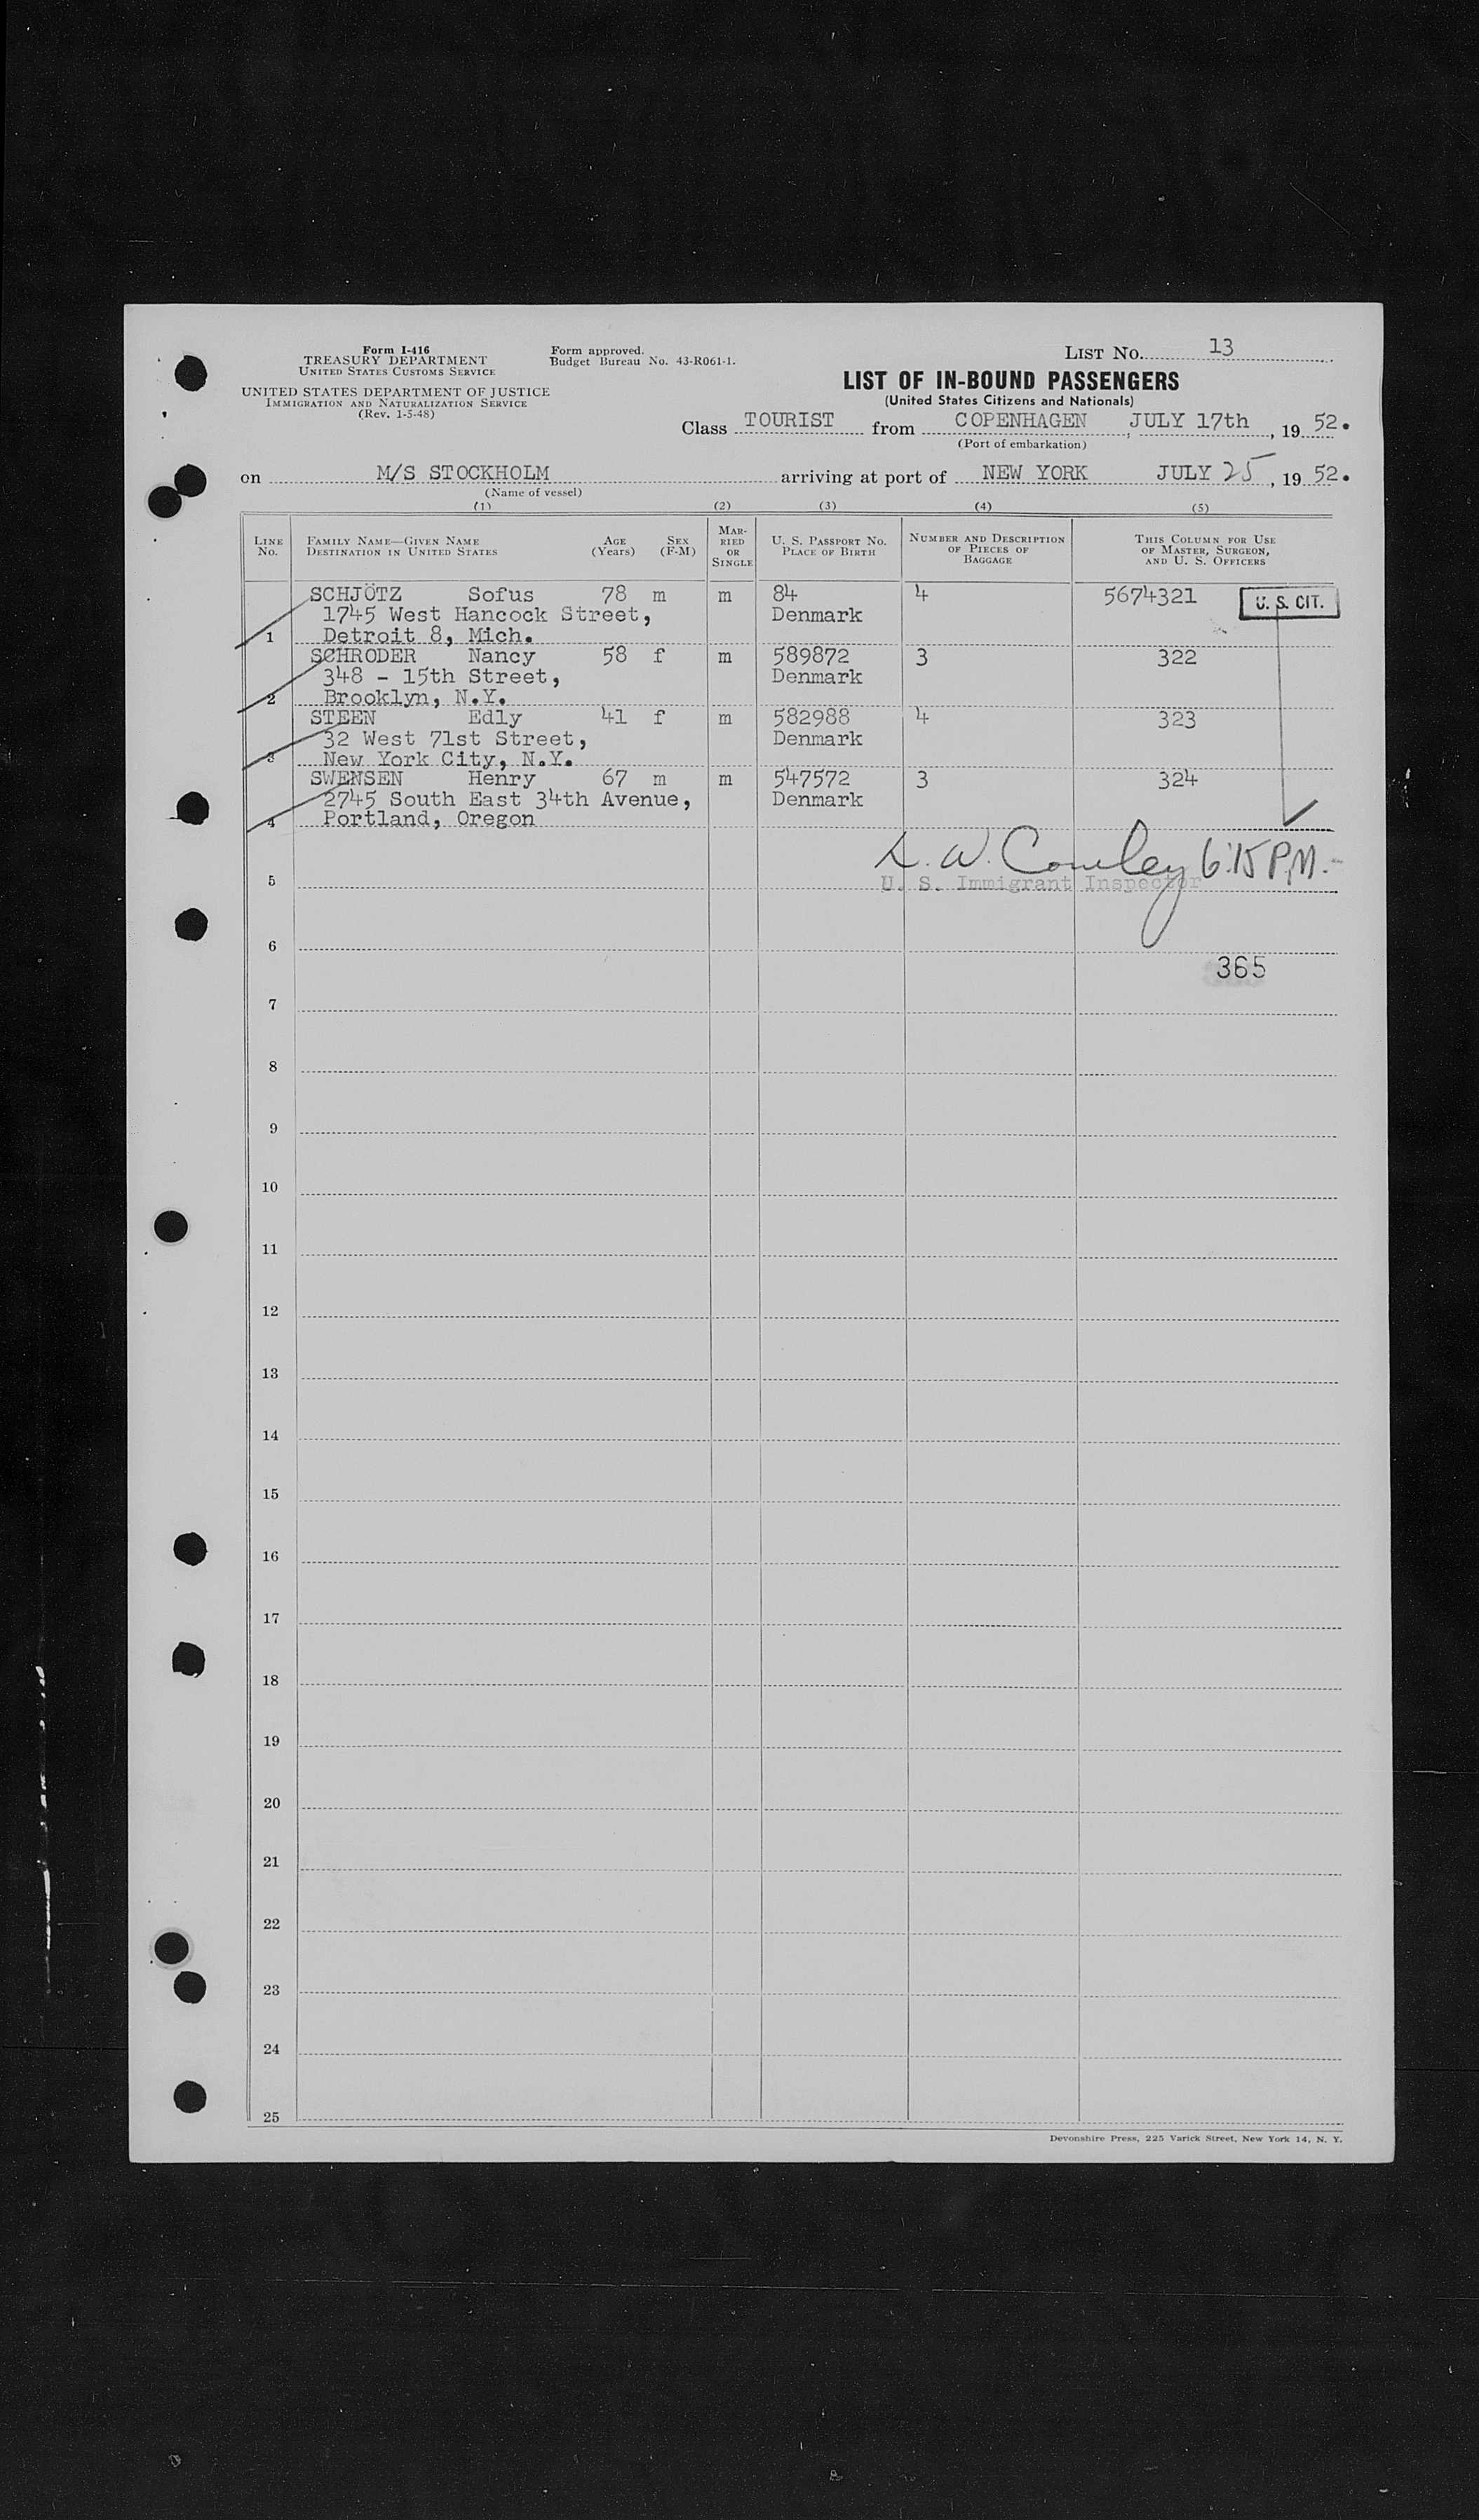 Form I-416
TREASURY DEPARTMENT
UNITED STATES CUSTOMS SERVICE
UNITED STATES DEPARTMENT OF JUSTICE
IMMIGRATION AND NATURALIZATION SERVICE
(Rev. 1-5-48)
Form approved.
Budget Bureau No. 43-R061-1.
LIST No. 13
LIST OF IN-BOUND PASSENGERS
(United States Citizens and Nationals)
Class TOURIST from COPENHAGEN, JULY 17th, 1952.
(Port of embarkation)
on M/S STOCKHOLM arriving at port of NEW YORK JULY 25, 1952.
(Name of vessel)
(1) (2) (3) (4) (5)
LINE No. FAMILY NAME—GIVEN NAME DESTINATION IN UNITED STATES AGE (Years) SEX (F-M) MARRIED OR SINGLE U. S. PASSPORT No. PLACE OF BIRTH NUMBER AND DESCRIPTION OF PIECES OF BAGGAGE THIS COLUMN FOR USE OF MASTER, SURGEON, AND U. S. OFFICERS
SCHJÖTZ Sofus 78 m m 84 4 5674321 U. S. CIT.
1745 West Hancock Street, Denmark
1 Detroit 8, Mich.
SCHRODER Nancy 58 f m 589872 3 322
348 - 15th Street, Denmark
2 Brooklyn, N.Y.
STEEN Edly 41 f m 582988 4 323
32 West 71st Street, Denmark
3 New York City, N.Y.
SWENSEN Henry 67 m m 547572 3 324
2745 South East 34th Avenue, Denmark
4 Portland, Oregon
L. W. Cowley 6:15 P.M.
5 U. S. Immigrant Inspector
6
365
7
8
9
10
11
12
13
14
15
16
17
18
19
20
21
22
23
24
25
Devonshire Press, 225 Varick Street, New York 14, N. Y.